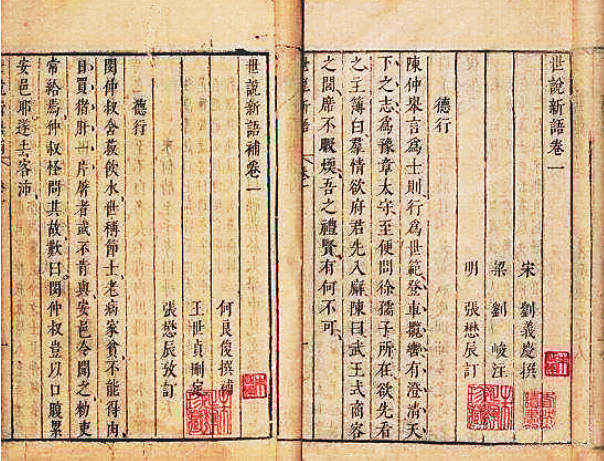 世說新語卷一
宋 劉義慶撰
梁 劉峻注
明 張懋辰訂
德行
陳仲舉言為士則行為世範登車攬轡有澄清天
下之志為豫章太守至便問徐孺子所在欲先看
之主簿曰羣情欲府君先入廨陳曰武王式商容
之閭席不暇煖吾之禮賢有何不可
世說新語 卷一
世說新語補卷一
何良俊撰補
王世貞刪定
張懋辰攷訂
德行
閔仲叔含菽飲水世稱節士老病家貧不能得肉
日買猪肝一片屠者或不肯與安邑令聞之勅吏
常給焉仲叔怪問其故歎曰閔仲叔豈以口腹累
安邑耶遂去客沛